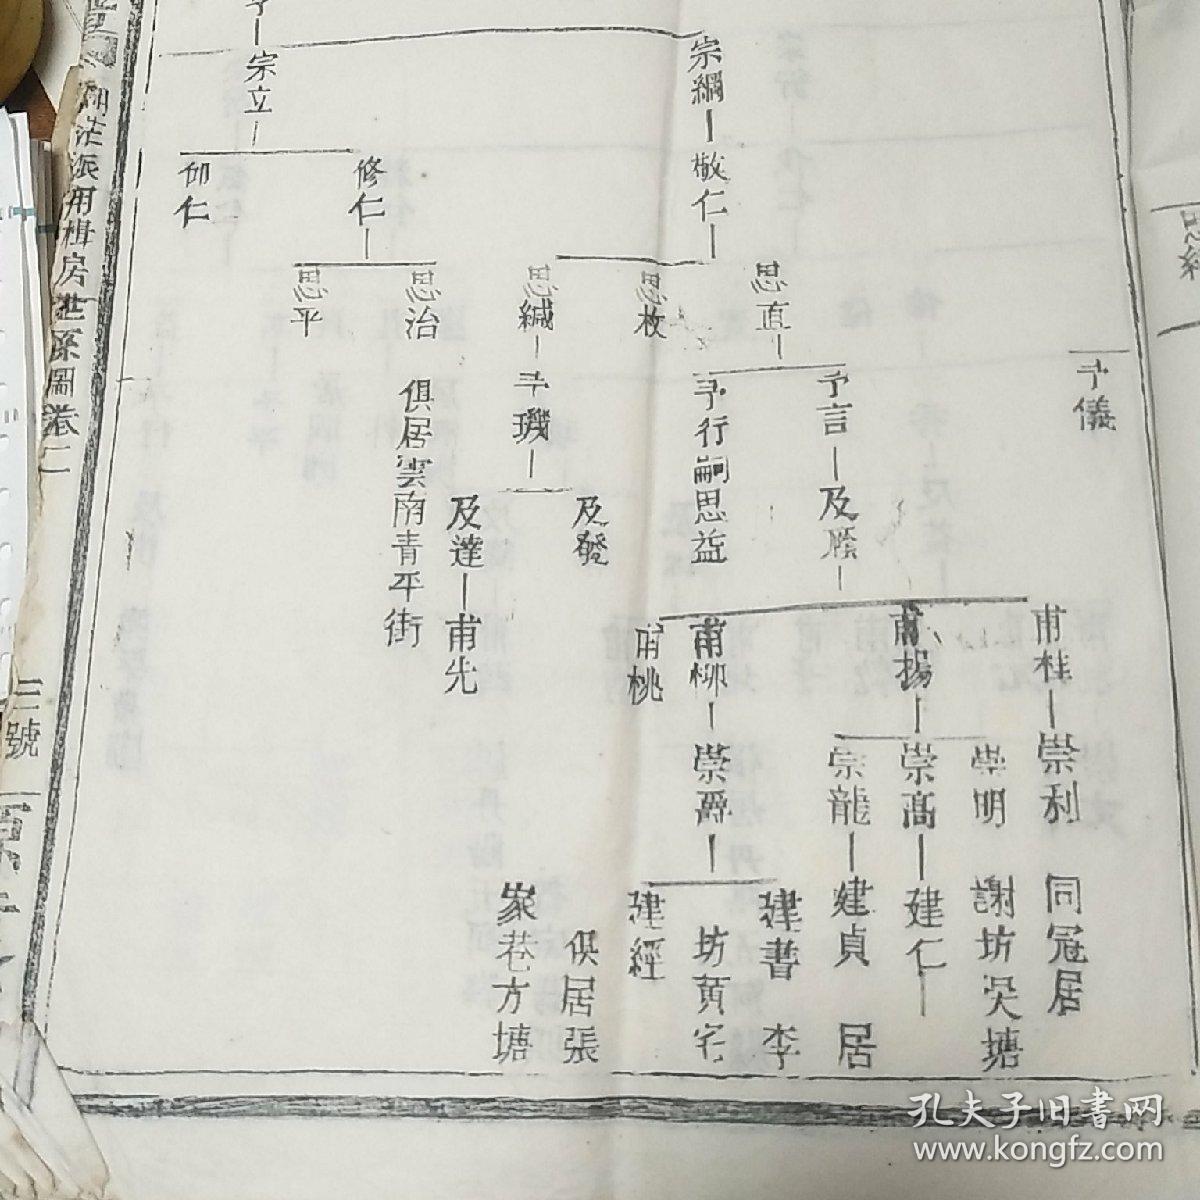 思經
予儀
甫桂
崇利
同冠居
崇明
謝坊吳塘
甫揚
崇高
建仁
崇龍
建貞
居
予言
及願
思直
建書
李
宗綱
敬仁
予行嗣思益
甫柳
崇爵
坊黃宅
思枚
甫桃
建經
思緘
予璣
及發
俱居張
家巷方塘
及達
甫先
修仁
思治
俱居雲南青平街
思平
宗立
仰仁
派用楫房世系圖卷二
三號
孔夫子旧书网
www.kongfz.com